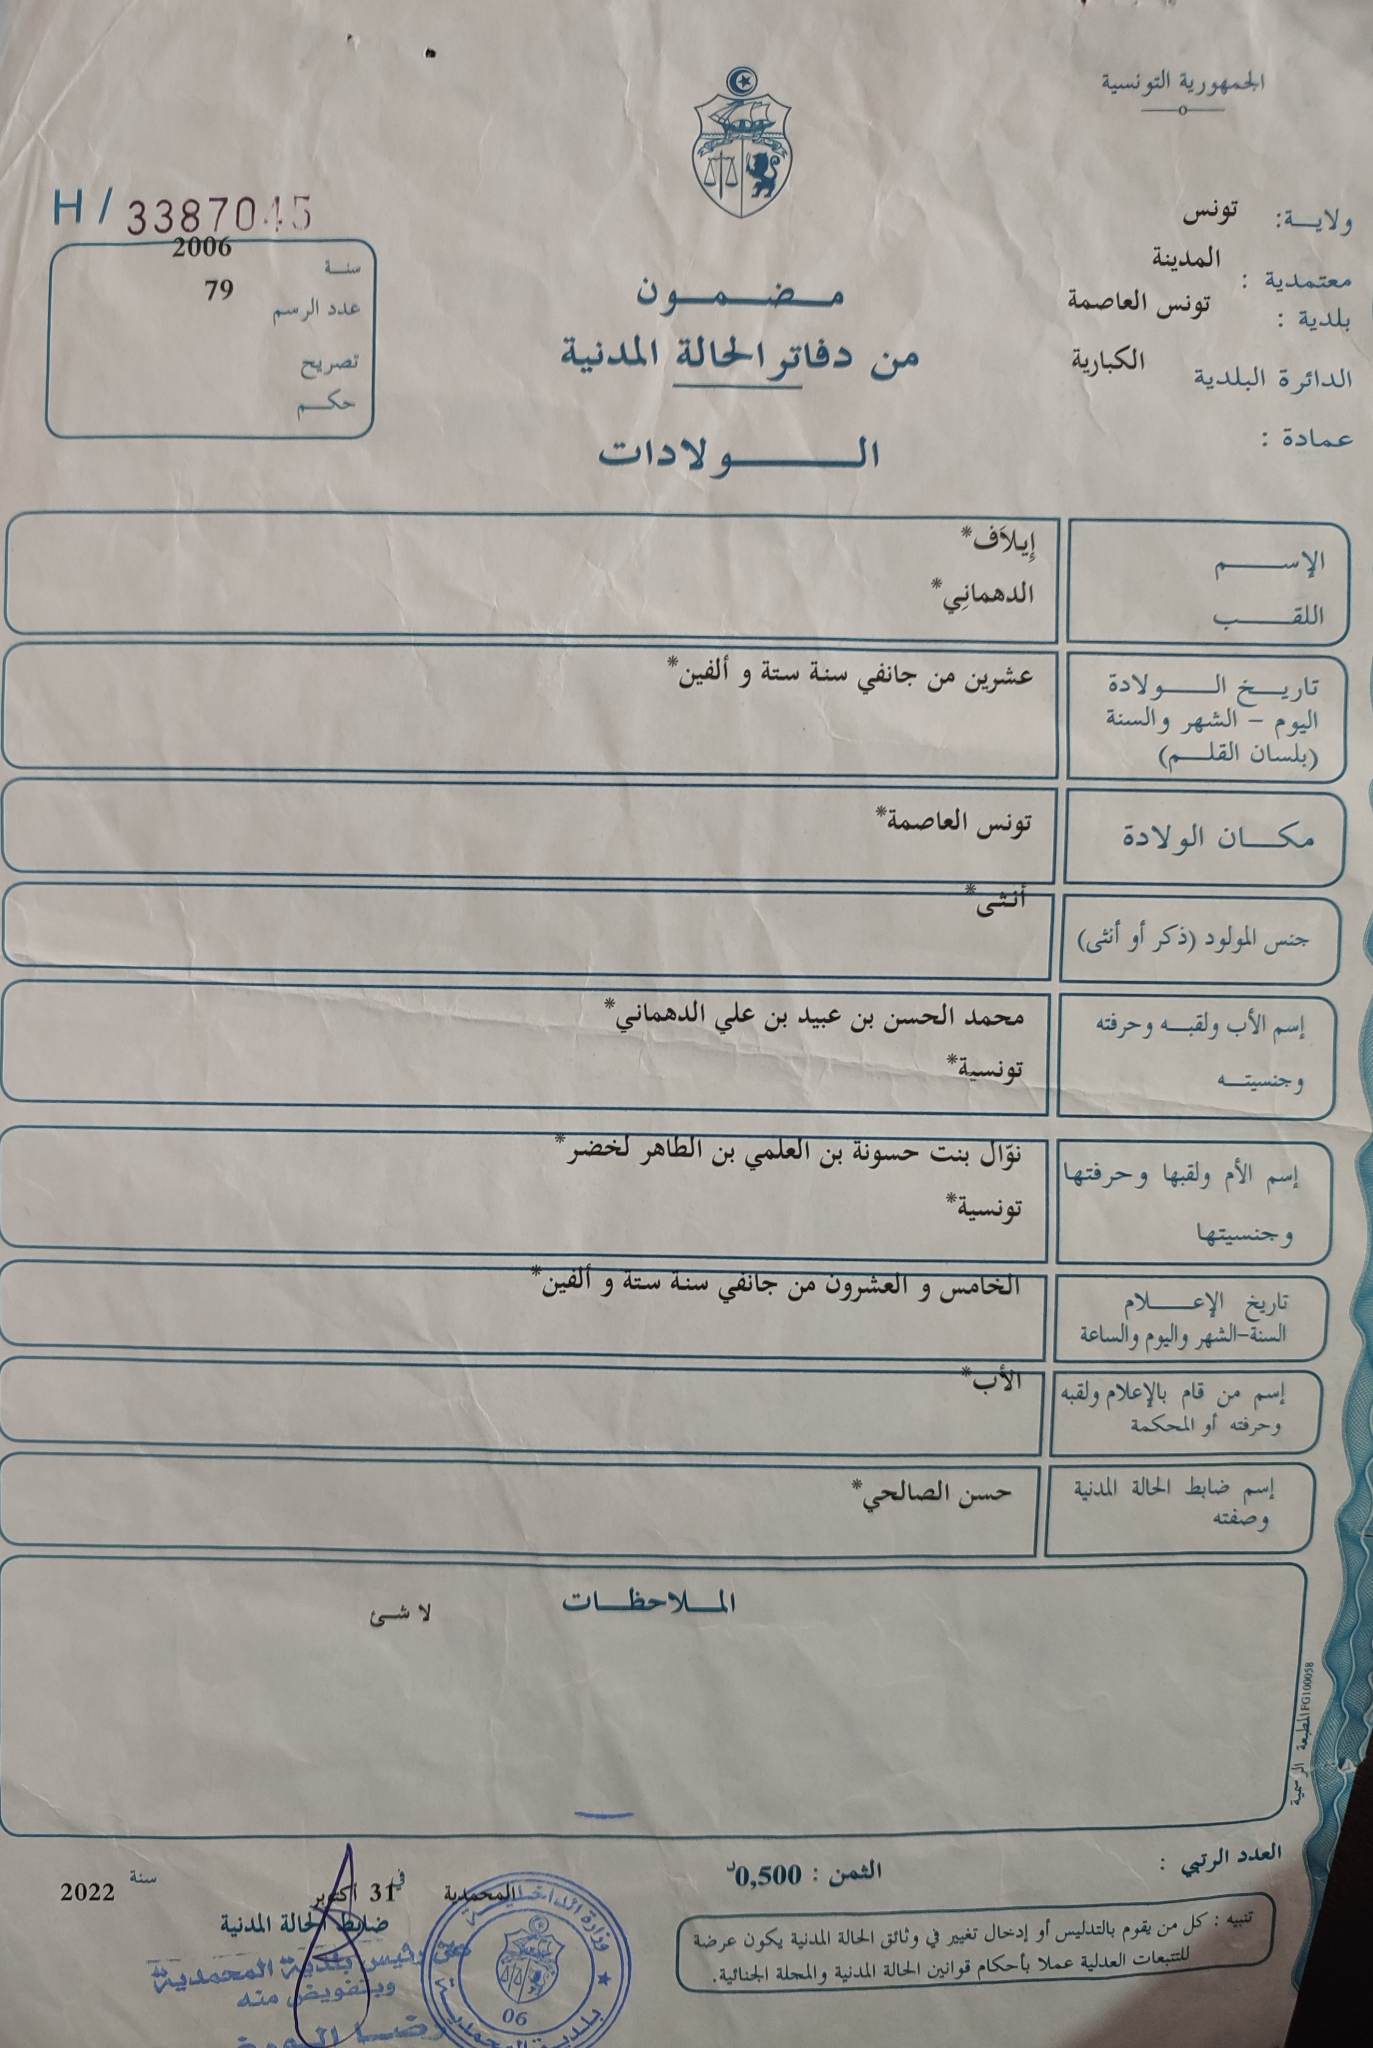 الجمهورية التونسية
ولاية: تونس
معتمدية : المدينة
بلدية : تونس العاصمة
الدائرة البلدية الكبارية
عمادة :
H / 3387045
سنة 2006
عدد الرسم 79
تصريح
حكم
مضمون
من دفاتر الحالة المدنية
الولادات
الإسم إِيلاَف*
اللقب الدهمانِي*
تاريخ الولادة عشرين من جانفي سنة ستة و ألفين*
اليوم - الشهر والسنة
(بلسان القلم)
مكان الولادة تونس العاصمة*
جنس المولود (ذكر أو أنثى) أنثى*
إسم الأب ولقبه وحرفته محمد الحسن بن عبيد بن علي الدهماني*
وجنسيته تونسية*
إسم الأم ولقبها وحرفتها نوّال بنت حسونة بن العلمي بن الطاهر لخضر*
وجنسيتها تونسية*
تاريخ الإعلام الخامس و العشرون من جانفي سنة ستة و ألفين*
السنة-الشهر واليوم والساعة
إسم من قام بالإعلام ولقبه الأب*
وحرفته أو المحكمة
إسم ضابط الحالة المدنية حسن الصالحي*
وصفته
الملاحظات
لا شئ
المطبعة الرسمية FG100058
العدد الرتبي :
الثمن : 0,500د
تنبيه : كل من يقوم بالتدليس أو إدخال تغيير في وثائق الحالة المدنية يكون عرضة
للتتبعات العدلية عملا بأحكام قوانين الحالة المدنية والمجلة الجنائية.
المحمدية في 31 أكتوبر سنة 2022
ضابط الحالة المدنية
عن رئيس بلدية المحمدية
وبتفويض منه
رضا
وزارة الداخلية
بلدية المحمدية
06